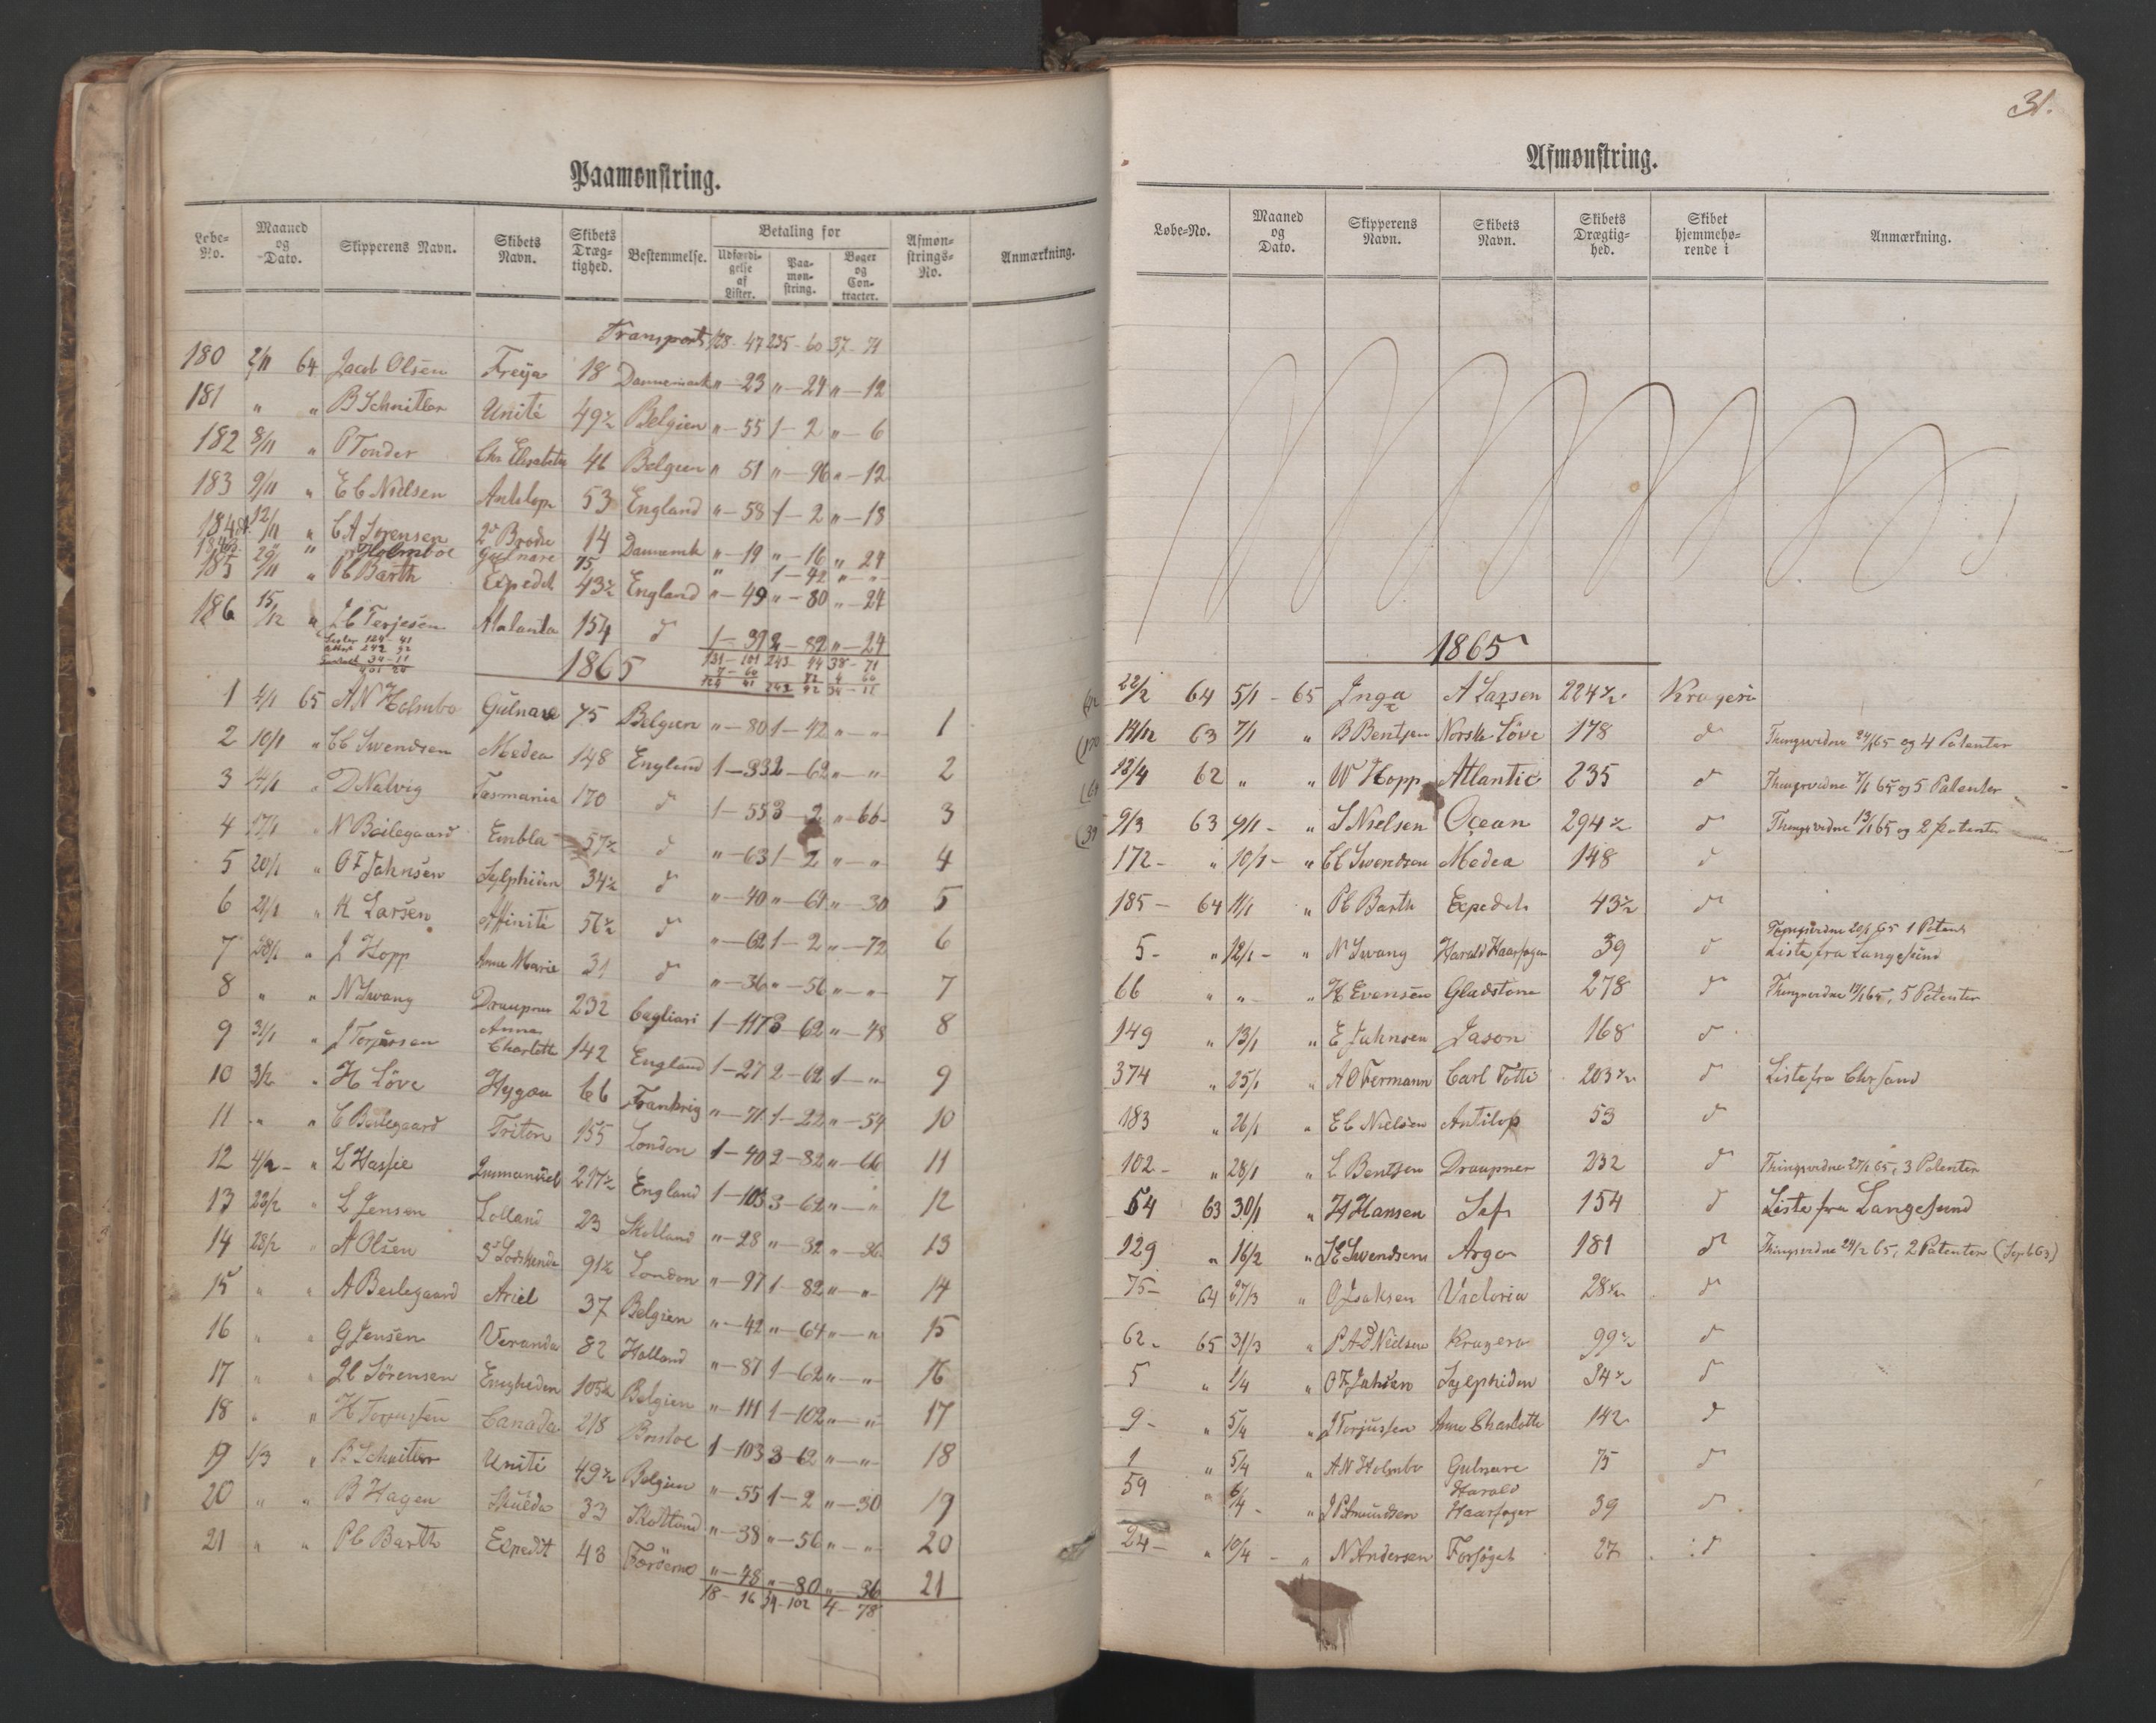 Paamønstring.
Løbe-No. Maaned og Dato. Skipperens Navn. Skibets Navn. Skibets Drægtighed. Bestemmelse. Betaling for Udfærdigelse af Lister. Paamønstring. Bøger og Contracter. Afmønstrings-No. Anmærkning.
Transport 128-47 235-60 37-71
180 2/11 64 Jacob Olsen Freija 18 Dannemark "-23 "-24 "-12
181 " " B Schnitler Unité 49½ Belgien "-55 1-2 "-6
182 8/11 " P Tonder Chr Elisabeth 46 Belgien " 51 "-96 "-12
183 9/11 " E C Nielsen Antelop 53 England "-58 1-2 "-18
184 12/11 " C A Sørensen 2de Brødre 14 Dannemk "-19 "-16 " 24
184 " " Holmboe Gulnare 75 " 1-42 "-"
185 29/11 " P C Barth Expedit 43½ England "-49 "-80 "-24
186 15/12 " J C Terjesen Atalanta 154 d 1-39 2-82 "-24
131-101 243-44 38-71
124 41 242 92 34-11
1865
1 4/1 65 A N Holmbo Gulnare 75 Belgien "-80 1-42 "-" 1
2 10/1 " C C Swendsen Medea 148 England 1-33 2-62 "-" 2
3 14/1 " D Nalvig Tasmania 170 d 1-55 3-2 "-66 3
4 17/1 " N Beilegaard Embla 57½ d "-63 1-2 "-" 4
5 20/1 " O F Jahnsen Sylphiden 34½ d "-40 "-64 "-30 5
6 21/1 " K Larsen Affinité 56½ d "-62 1-2 "-72 6
7 28/1 " J Hopp Anne Marie 31 d "-36 "-56 "-" 7
8 " " N Swang Draupner 232 Cagliari 1-117 3-62 "-48 8
9 31/1 " J Torjusen Anna Charlotte 142 England 1-27 2-62 1-" 9
10 3/2 " H Løve Hygæa 66 Frankrig "-71 1-22 "-54 10
11 " " C Beilegaard Triton 155 London 1-40 2-82 "-66 11
12 4/2 " L Hassel Immanuel 217½ England 1-103 3-62 "-" 12
13 22/2 " L Jensen Lolland 23 Skotland "-28 "-32 "-36 13
14 28/2 " A Olsen 3de Sødskende 91½ London "-97 1-82 "-" 14
15 " " A Beilegaard Ariel 37 Belgien "-42 "-64 "-" 15
16 " " G Jensen Veranda 82 Holland "-87 1-62 "-" 16
17 " " J C Sørensen Enigheden 105½ Belgien "-111 1-102 "-" 17
18 " " H Torjusen Canada 218 Bristol 1-103 3-62 "-" 18
19 1/3 " B Schnitler Unité 49½ Belgien "-55 1-2 "-30 19
20 " " B Hagen Skulda 33 Skotland "-38 "-56 "-" 20
21 " " P C Barth Expedit 43 Færøerne "-48 "-80 "-36 21
18-16 34-102 4-78
31.
Afmønstring.
Løbe-No. Maaned og Dato. Skipperens Navn. Skibets Navn. Skibets Drægtighed. Skibet hjemmehørende i Anmærkning.
1865
22/2 64 5/1-65 Inga A Larsen 224½ Kragerø
14/12 63 7/1 " B Bentsen Norske Løve 178 d Thingsvidne 24/1 65 og 4 Patenter
12/4 62 " " W Hopp Atlantic 235 d Thingsvidne 7/1 65 og 5 Patenter
9/3 63 9/1- " S Nielsen Ocean 294½ d Thingsvidne 13/1 65 og 2 Patenter
172- " 10/1- " C C Swendsen Medea 148 d
185- 64 11/1 " P C Barth Expedit 43½ d
5- " 12/1- " N Swang Harald Haarfager 39 d Thingsvidne 20/1 65 1 Patent Liste fra Langesund
66 " " " H Evensen Gladstone 278 d Thingsvidne 17/1 65, 5 Patenter
149 " 13/1 " E Jahnsen Jason 168 d
374 " 25/1 " A O Fermann Carl Totti 203½ d Liste fra Chrsand
183 " 26/1 " E C Nielsen Antilop 53 d
102- " 28/1 " L Bentsen Draupner 232 d Thingsvidne 27/1 65, 3 Patenter
54 63 30/1 " H Hansen Sef 154 d Liste fra Langesund
129 " 16/2 " S E Swendsen Argo 181 d Thingsvidne 23/2 65, 2 Patenter (Sept 63)
75- 64 27/3 " O Isaksen Victoria 28½ d
62- 65 31/3 " P A D Nielsen Kragerø 99½ d
5 " 1/4 " O F Jahnsen Sylphiden 34½ d
9- " 5/4 " J Torjussen Anne Charlotte 142 d
1 " 5/4 " A N Holmbo Gulnare 75 d
59 " 6/4- " J P Amundsen Harald Haarfager 39 d
24- " 10/4- " N Andersen Forsøget 27 d